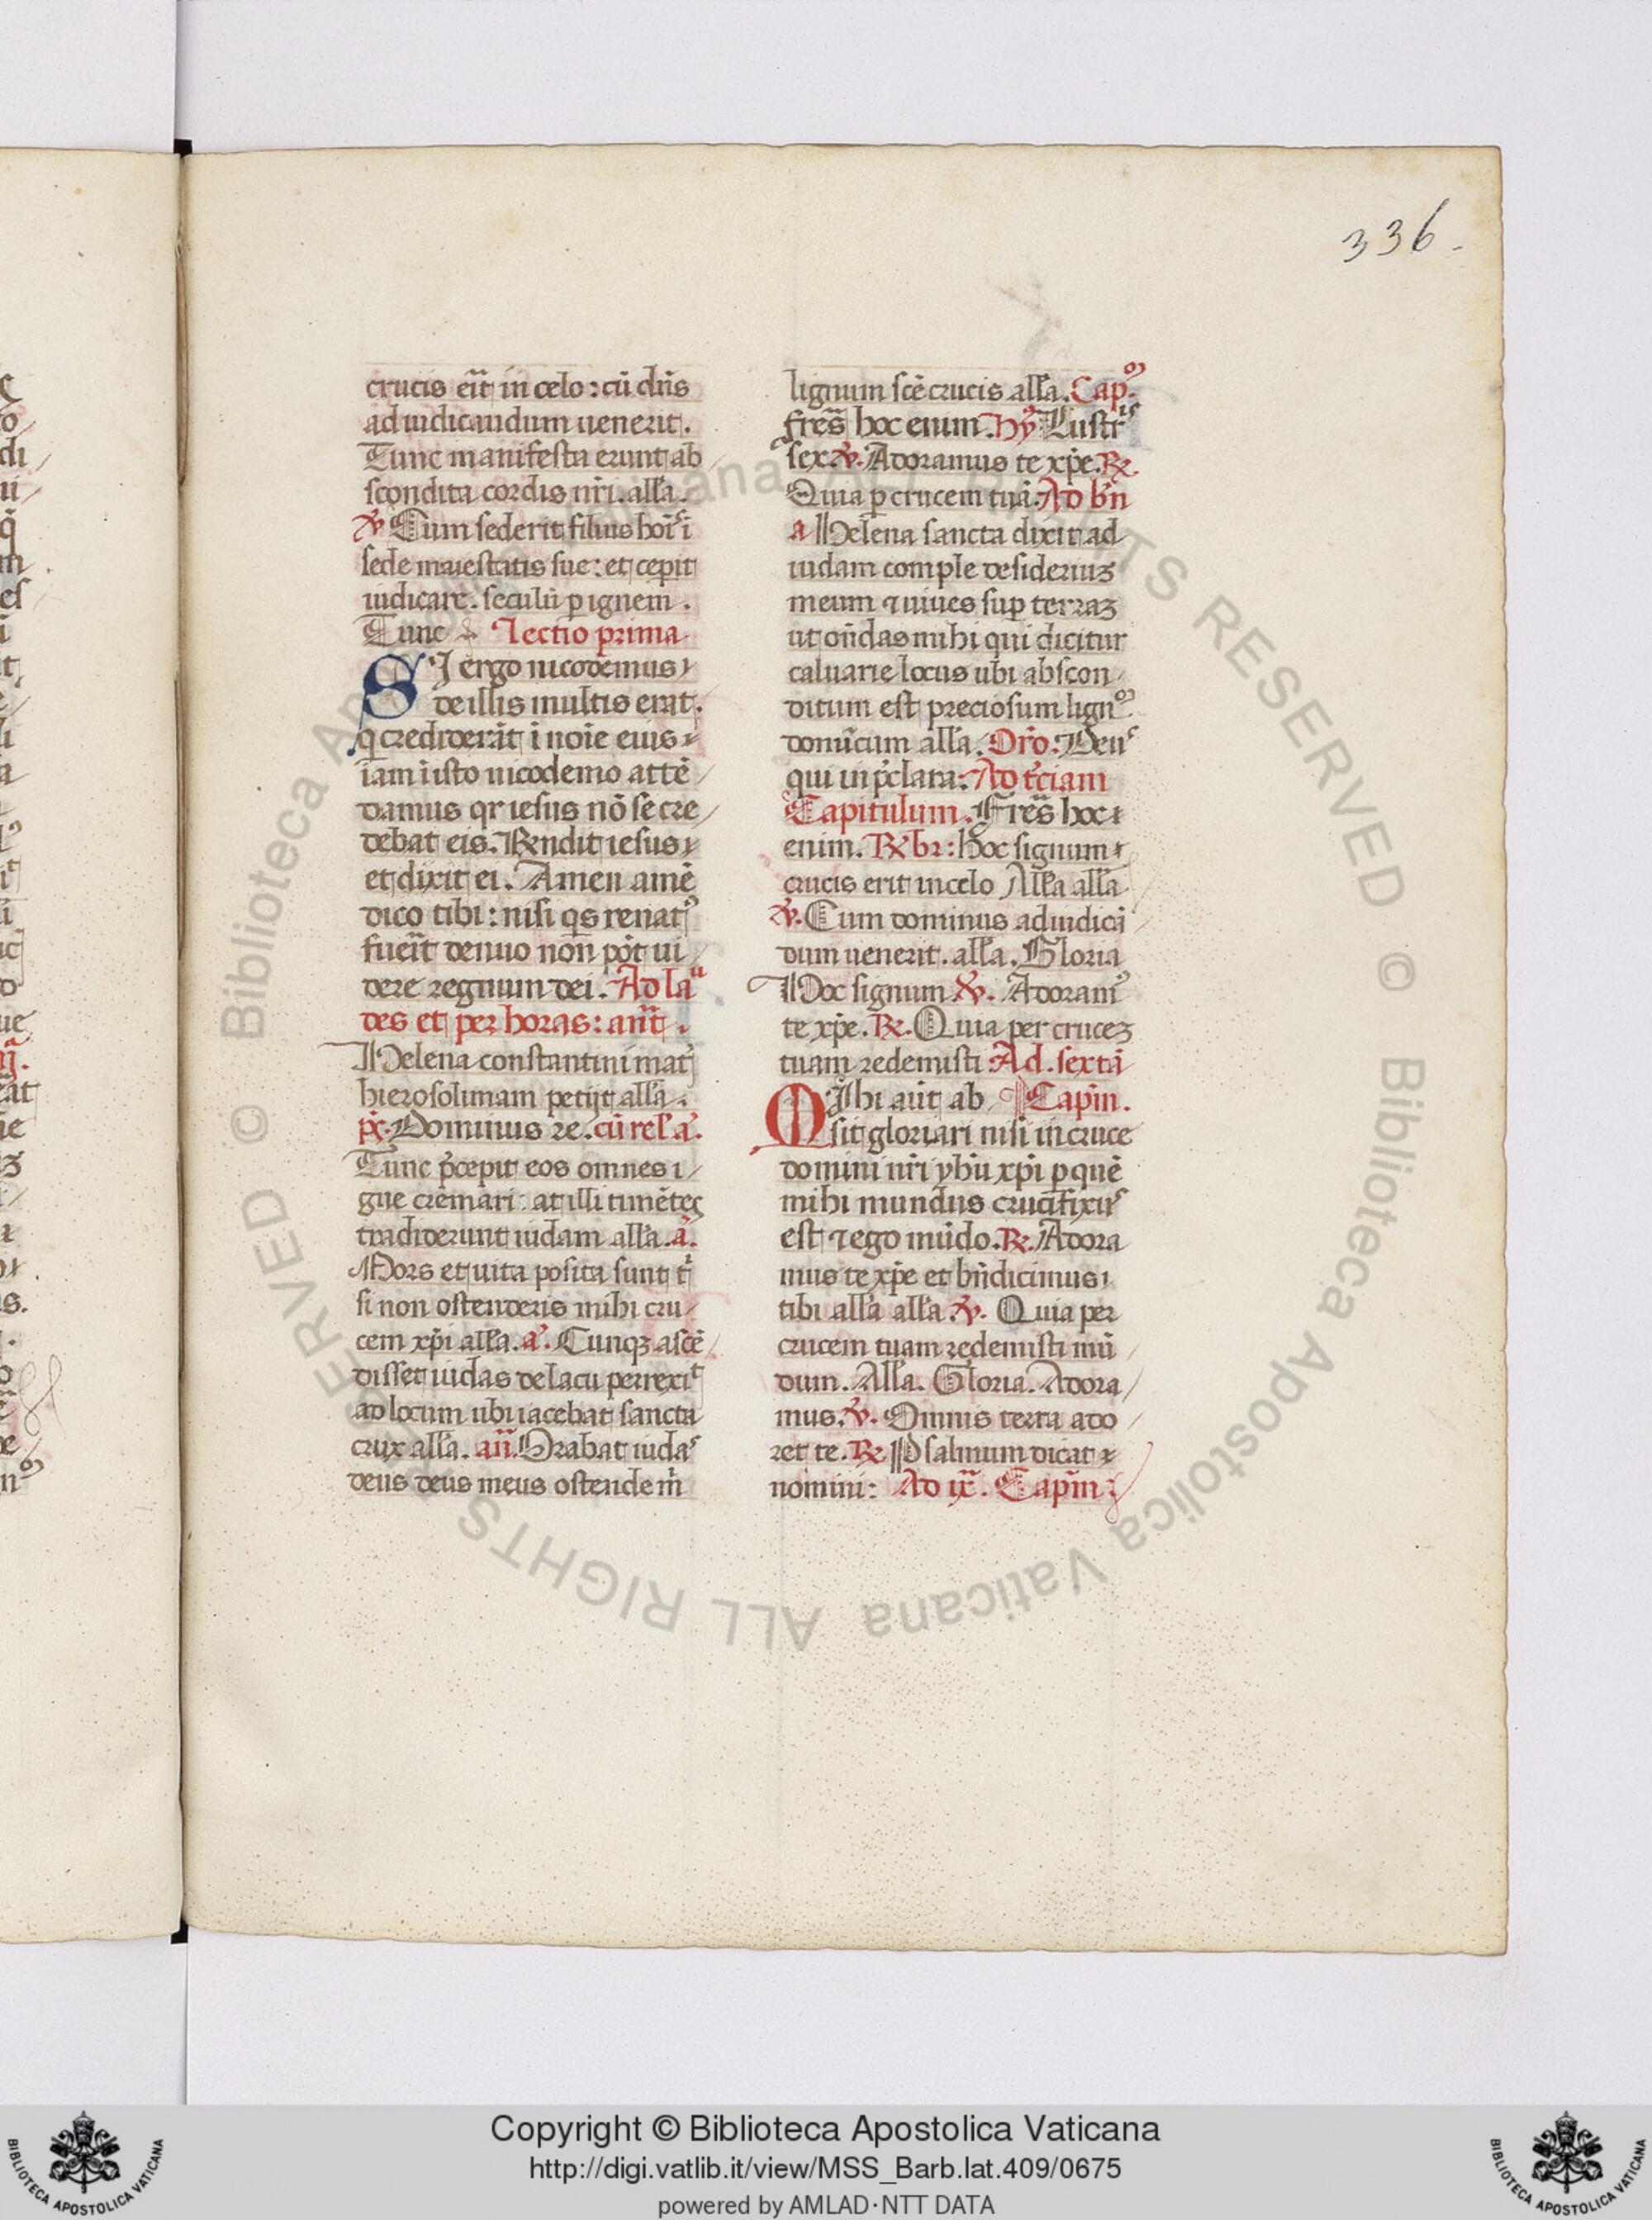 336.
crucis erit in celo: cũ dñs
ad iudicandum uenerit.
Tunc manifesta erunt ab
scondita cordis nr̃i. all'a.
℣ Cum sederit filius hoĩs ĩ
sede maiestatis sue: et cepit
iudicare. seculũ p ignem.
Tunc Lectio prima
SI ergo nicodemus
de illis multis erat.
q crediderãt ĩ noĩe eius
iam ĩ isto nicodemo attẽ
damus qr iesus nõ se cre
debat eis. Rñdit iesus
et dixit ei. Amen amẽ
dico tibi: nisi qs renat9
fuerit denuo non põt ui
dere regnum dei. Ad lau
des et per horas: añt.
Helena constantini mat̃
hierosolimam petijt all'a.
p̃s. Dominus re. cũ rel'. a'.
Tunc p̃cepit eos omnes i
gne cremari: at illi timẽtes
tradiderunt iudam all'a. a'.
Mors et uita posita sunt t̃
si non ostenderis mihi cru
cem xp̃i all'a. a'. Cunqꝫ ascẽ
disset iudas de lacu perrexit
ad locum ubi iacebat sancta
crux all'a. añ. Orabat iudas
deus deus meus ostende m̃
lignum scẽ crucis all'a. Cap9.
Fres̃ hoc enim. Hy9 Lustris
sex. ℣. Adoramus te xp̃e. ℟.
Quia p crucem tuã. Ad bñ
a Helena sancta dixit ad
iudam comple desideriuꝫ
meum ⁊ uiues sup terraꝫ
ut oñdas mihi qui dicitur
caluarie locus ubi abscon
ditum est preciosum lign9
domĩcum all'a. Orõ. Deus
qui in p̃clara: Ad t̃ciam
Capitulum. Fres̃ hoc
enim. ℟ br: Hoc signum
crucis erit in celo All'a all'a
℣. Cum dominus ad iudicã
dum uenerit. all'a. Gloria
Hoc signum ℣. Adoram9
te xp̃e. ℟. Quia per cruceꝫ
tuam redemisti Ad. sextã
MIhi aũt ab Capĩm.
sit gloriari nisi in cruce
domini nr̃i yhũ xp̃i p quẽ
mihi mundus crucifixus
est ⁊ ego mũdo. ℟. Adora
mus te xp̃e et bñdicimus
tibi all'a all'a ℣. Quia per
crucem tuam redemisti mũ
dum. All'a. Gloria. Adora
mus. ℣. Omnis terra ado
ret te. ℟ Psalmum dicat
nomini: Ad ix̃. Capĩm:
© Biblioteca Apostolica Vaticana ALL RIGHTS RESERVED
Copyright © Biblioteca Apostolica Vaticana
http://digi.vatlib.it/view/MSS_Barb.lat.409/0675
powered by AMLAD·NTT DATA
BIBLIOTECA APOSTOLICA VATICANA
BIBLIOTECA APOSTOLICA VATICANA